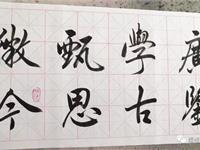 廣學甄微
鑒古思今